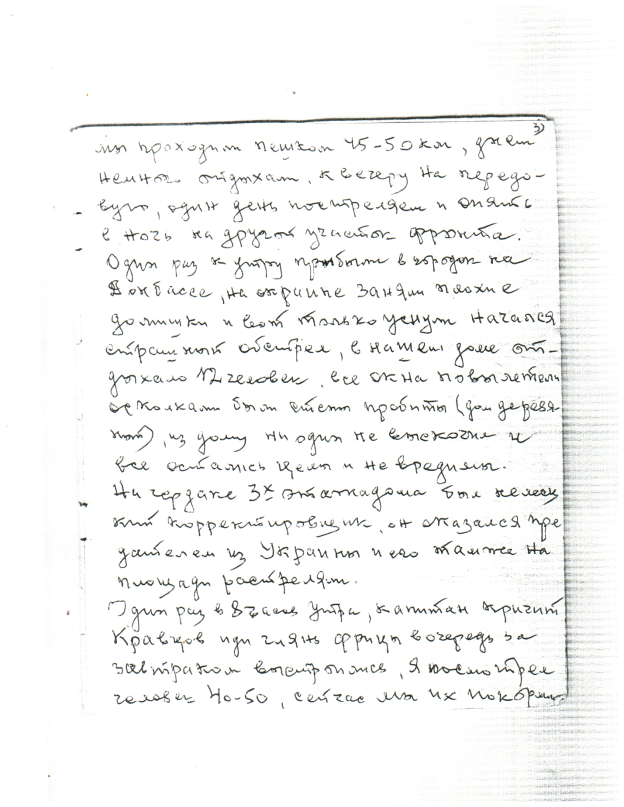 3)
мы проходим пешком 45-50 км, днем
немного отдыхат, к вечеру на передо-
вую, один день постреляем и опять
в ночь на другой участок фронта.
Один раз к утру прибыли в городок на
Донбассе, на окраине заняли плохие
домишки и вот только уснут начался
страшный обстрел, в нашем доме от-
дыхало 12 человек, все окна повылетели
осколками были стены пробиты (дом деревя-
ный), из дому ни один не выскочил и
все остались целы и не вредимы.
На чердаке 3х этаж дома был немец
кий корректировщик, он оказался пре
дателем из Украины и его там же на
площади растреляли.
Один раз в 8 часов утра, капитан кричит
Кравцов иди глянь фрицы в очередь за
завтраком выстроились, я посмотрел
человек 40-50, сейчас мы их покормим